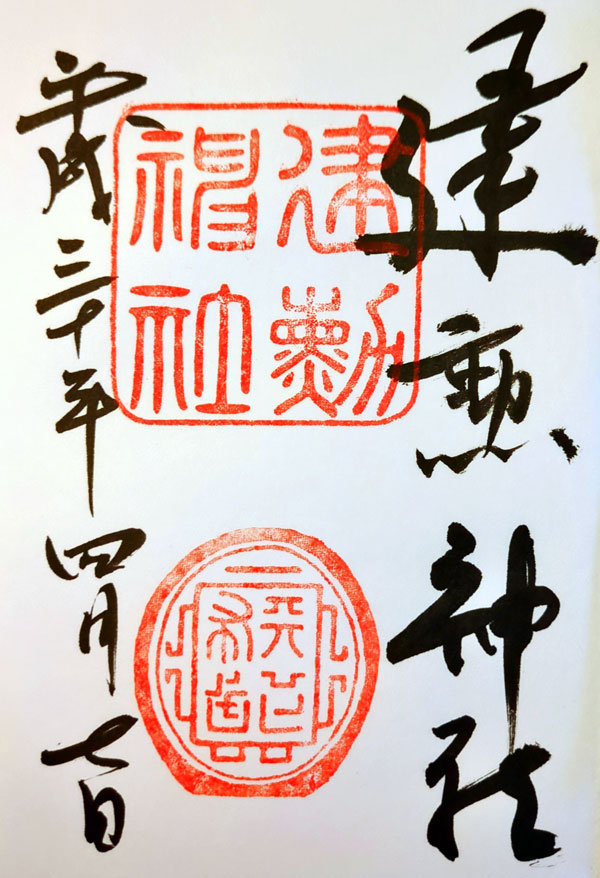 建勲神社
建勳
神社
平成三十年四月七日